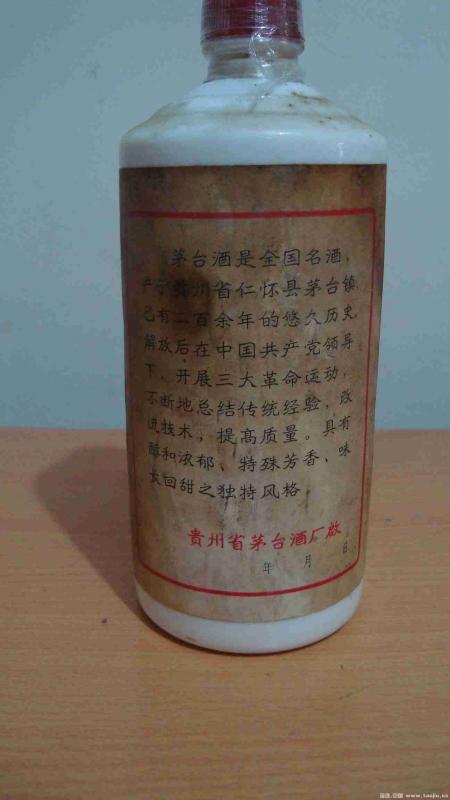 茅台酒是全国名酒，
产于贵州省仁怀县茅台镇
已有二百余年的悠久历史，
解放后在中国共产党领导
下，开展三大革命运动，
不断地总结传统经验，改
进技术，提高质量。具有
醇和浓郁、特殊芳香、味
长回甜之独特风格
贵州省茅台酒厂敬
年 月 日
www.taojiu.cn